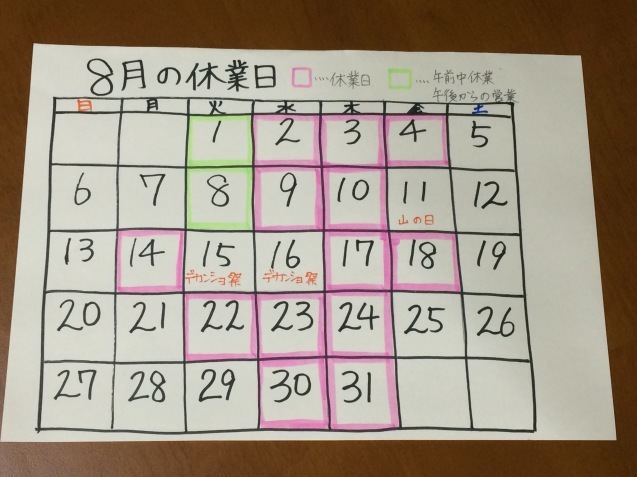 8月の休業日 ....休業日 ....午前中休業
午後からの営業
日 月 火 水 木 金 土
1 2 3 4 5
6 7 8 9 10 11 12
山の日
13 14 15 16 17 18 19
デカンショ祭 デカンショ祭
20 21 22 23 24 25 26
27 28 29 30 31